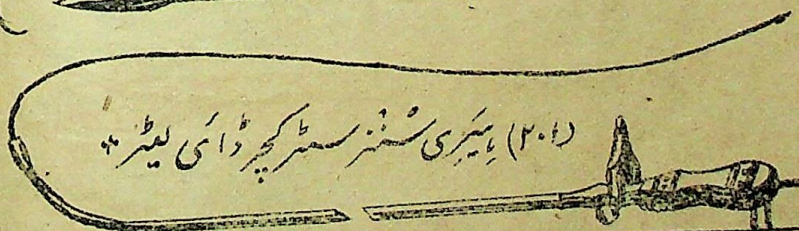 (۲۰۱) ہیری سنز سٹرکچر ڈائی لیٹر *